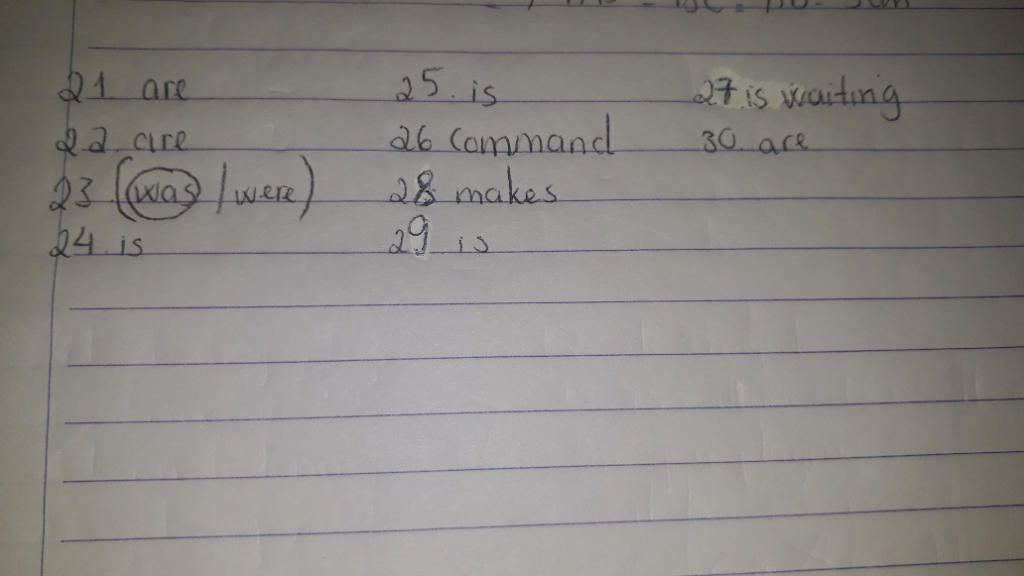 21 are
22. are
23 (was / were)
24 is
25. is
26 Command
28 makes
29 is
27 is waiting
30 are